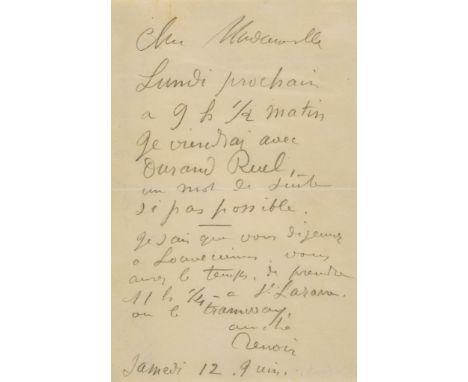 Cher Mademoiselle
Lundi prochain
a 9 h 1/2 matin
je viendrai avec
Durand Ruel,
un mot de suite
si pas possible.
je sais que vous dejeunez
a Louveciennes, vous
aurez le temps de prendre
11 h 1/4 - a St Lazare.
ou le tramway,
amitié
Renoir
Samedi 12 Juin.